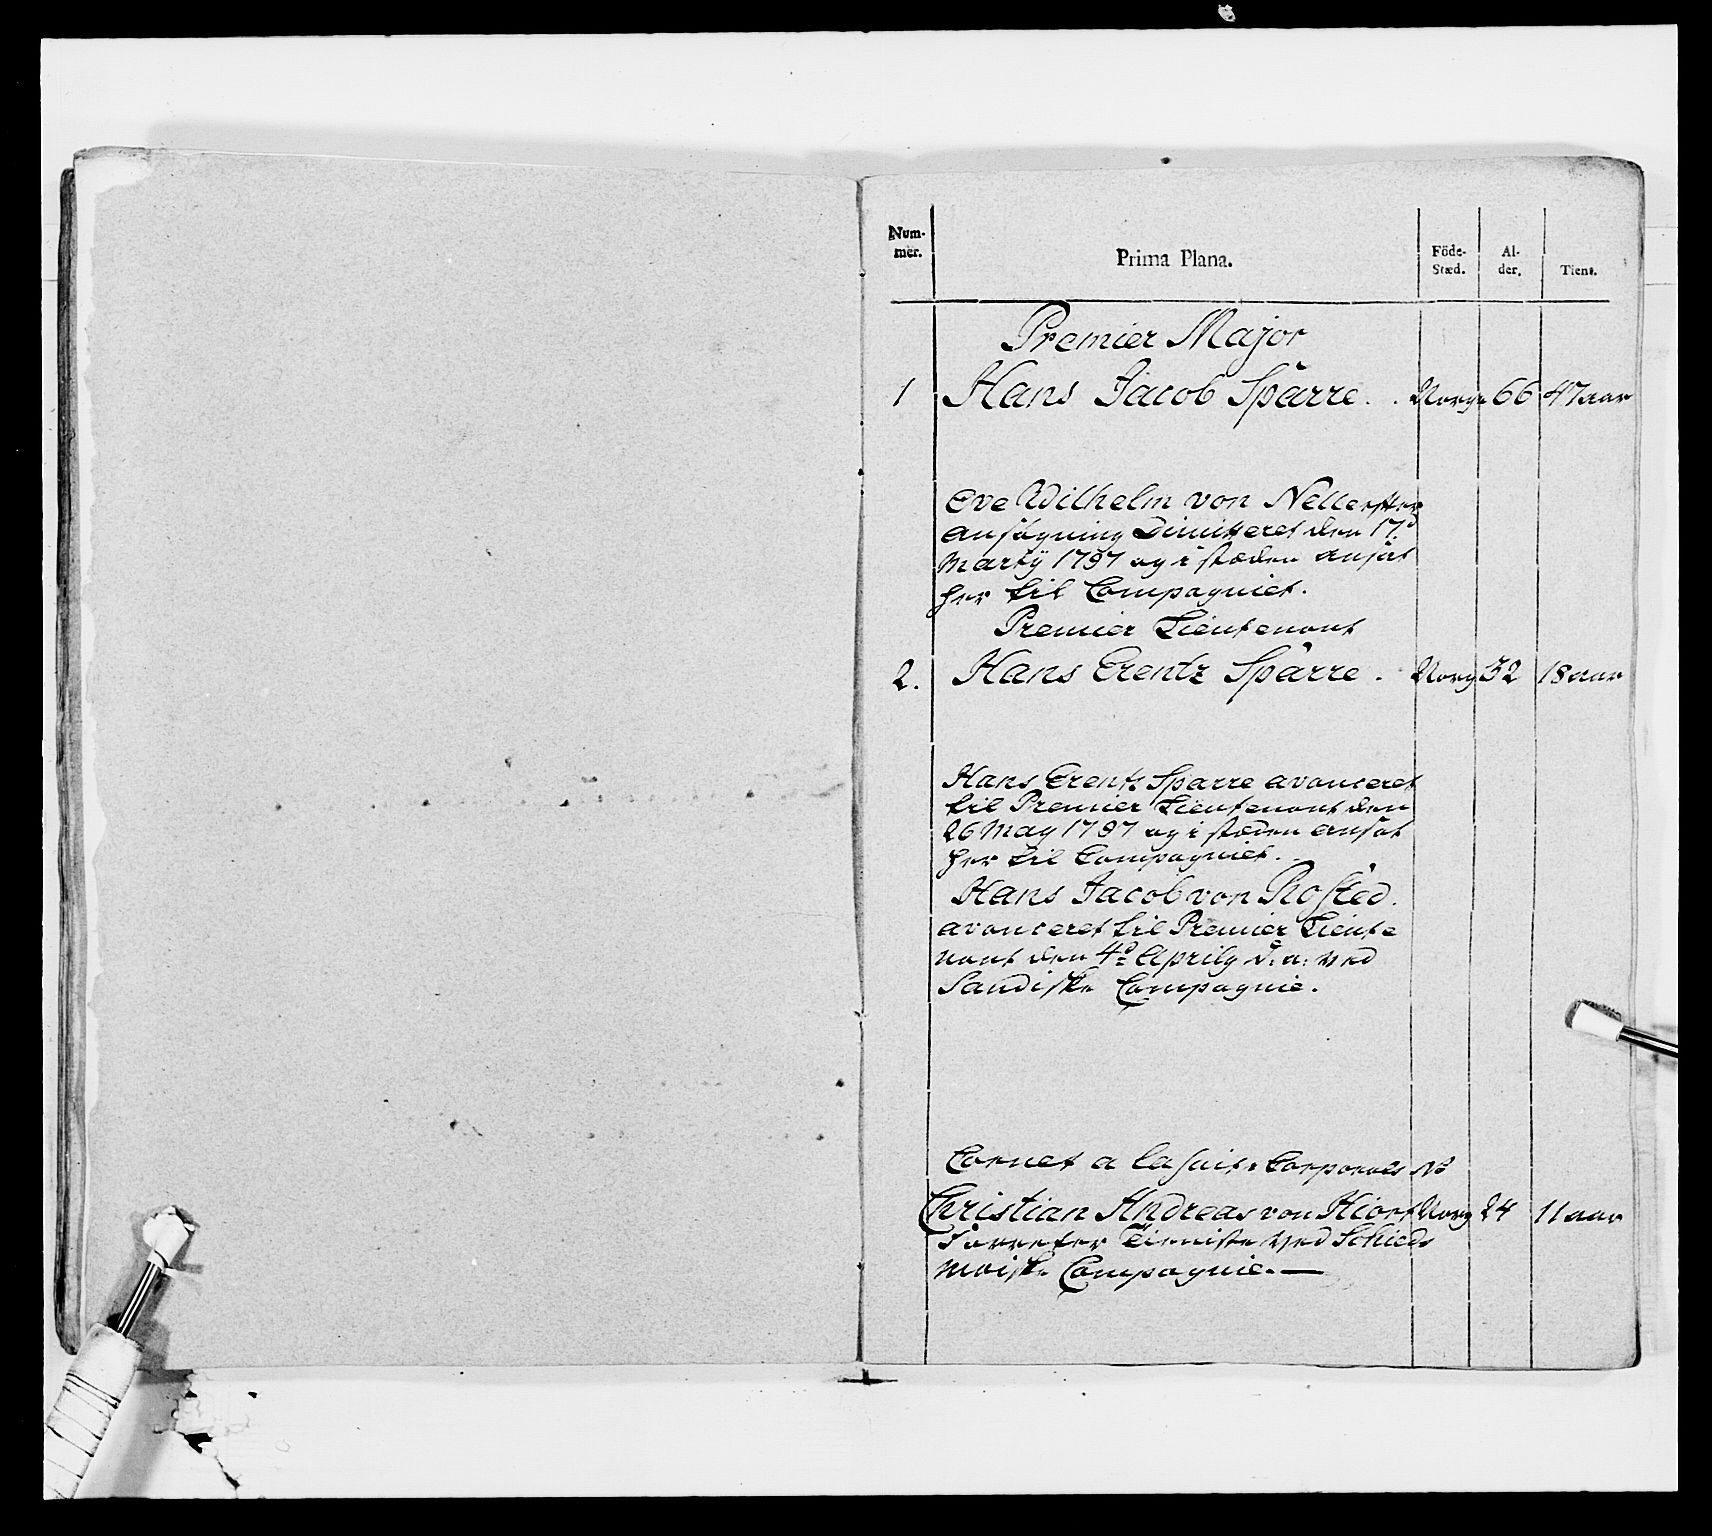 Num- mer. Prima Plana. Föde- Stæd. Al- der. Tient.
Premier Major
1 Hans Jacob Sparre. . Norge 66 47 aar
Ove Wilhelm von Nell efter
ansøgning Dimitteret den 17d
Martÿ 1797 og i stæden ansat
her til Compagniet.
Premier Lieutenant
2. Hans Erentz Sparre. Norg 32 18 aar
Hans Erentz Sparre avanceret
til Premier Lieutenant den
26 May 1797 og i stæden ansat
her til Compagniet.
Hans Jacob von Rosted.
avanceret til Premier Lieute
nant den 4de Aprily d: a: ved
Sandiske Compagnie.
Cornet a la suite Corporals No
Christian Andreas von Hiort Norg 24 11 aar
forretter Tieniste ved Schieds
moiske Compagnie.—